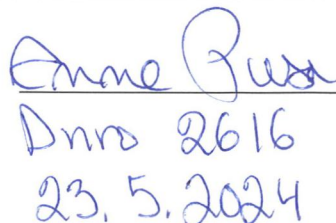 Anne
Dnro 2616
23.5.2024